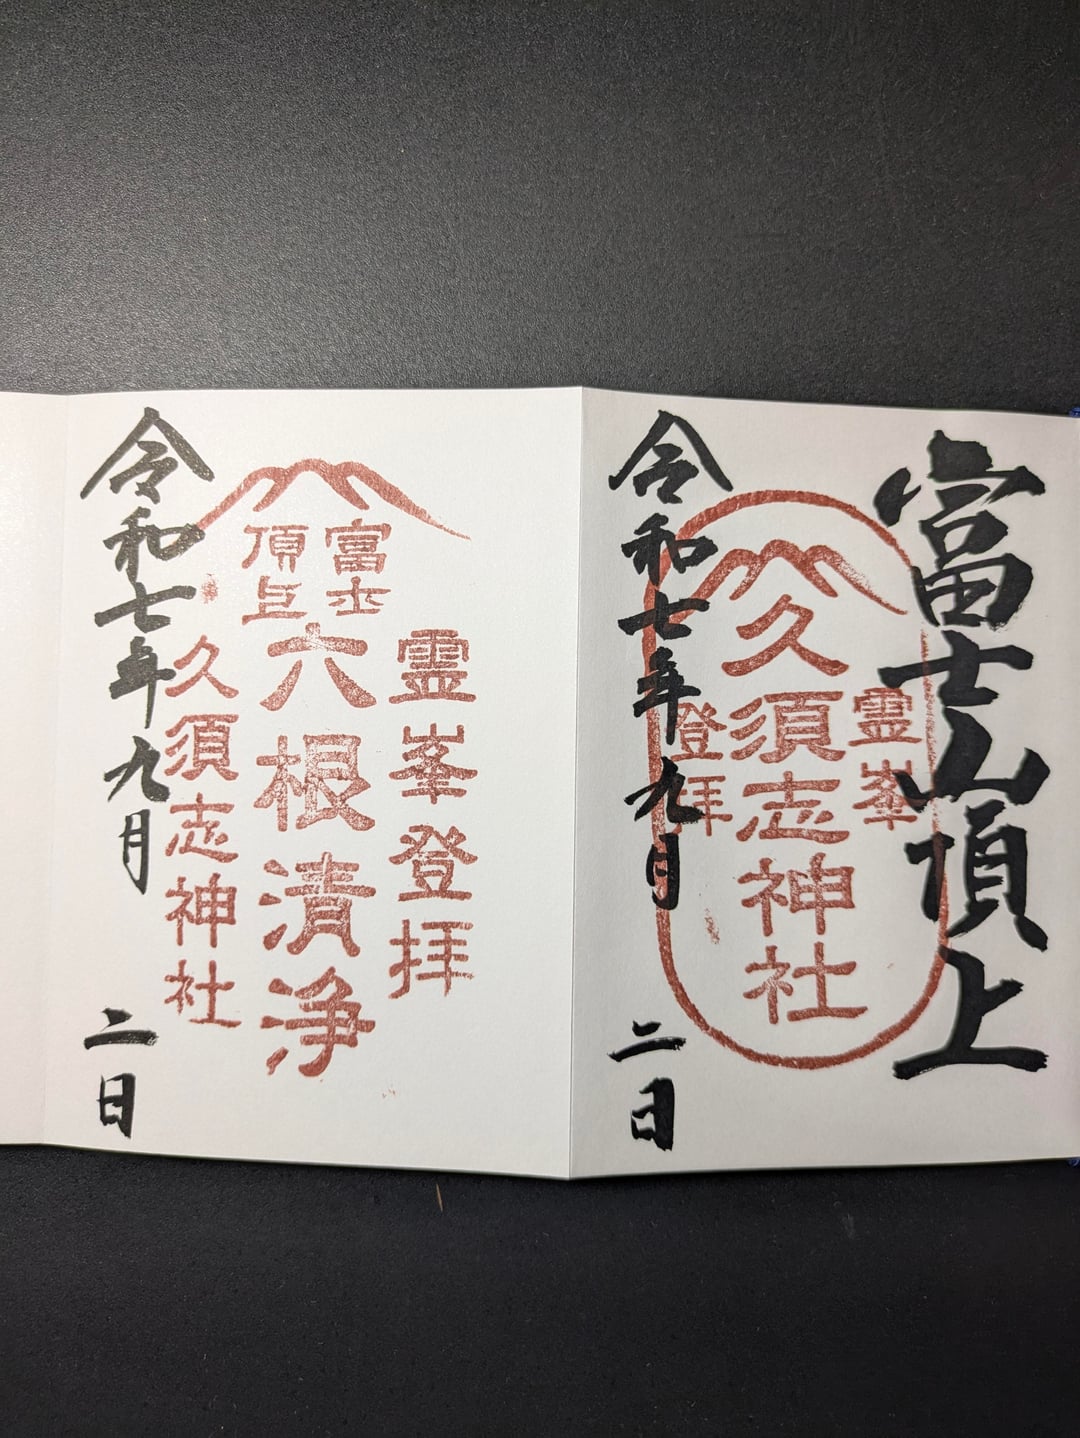 富士山頂上
霊峯
久須志神社
登拝
令和七年九月二日
霊峯登拝
富士
頂上
六根清浄
久須志神社
令和七年九月二日